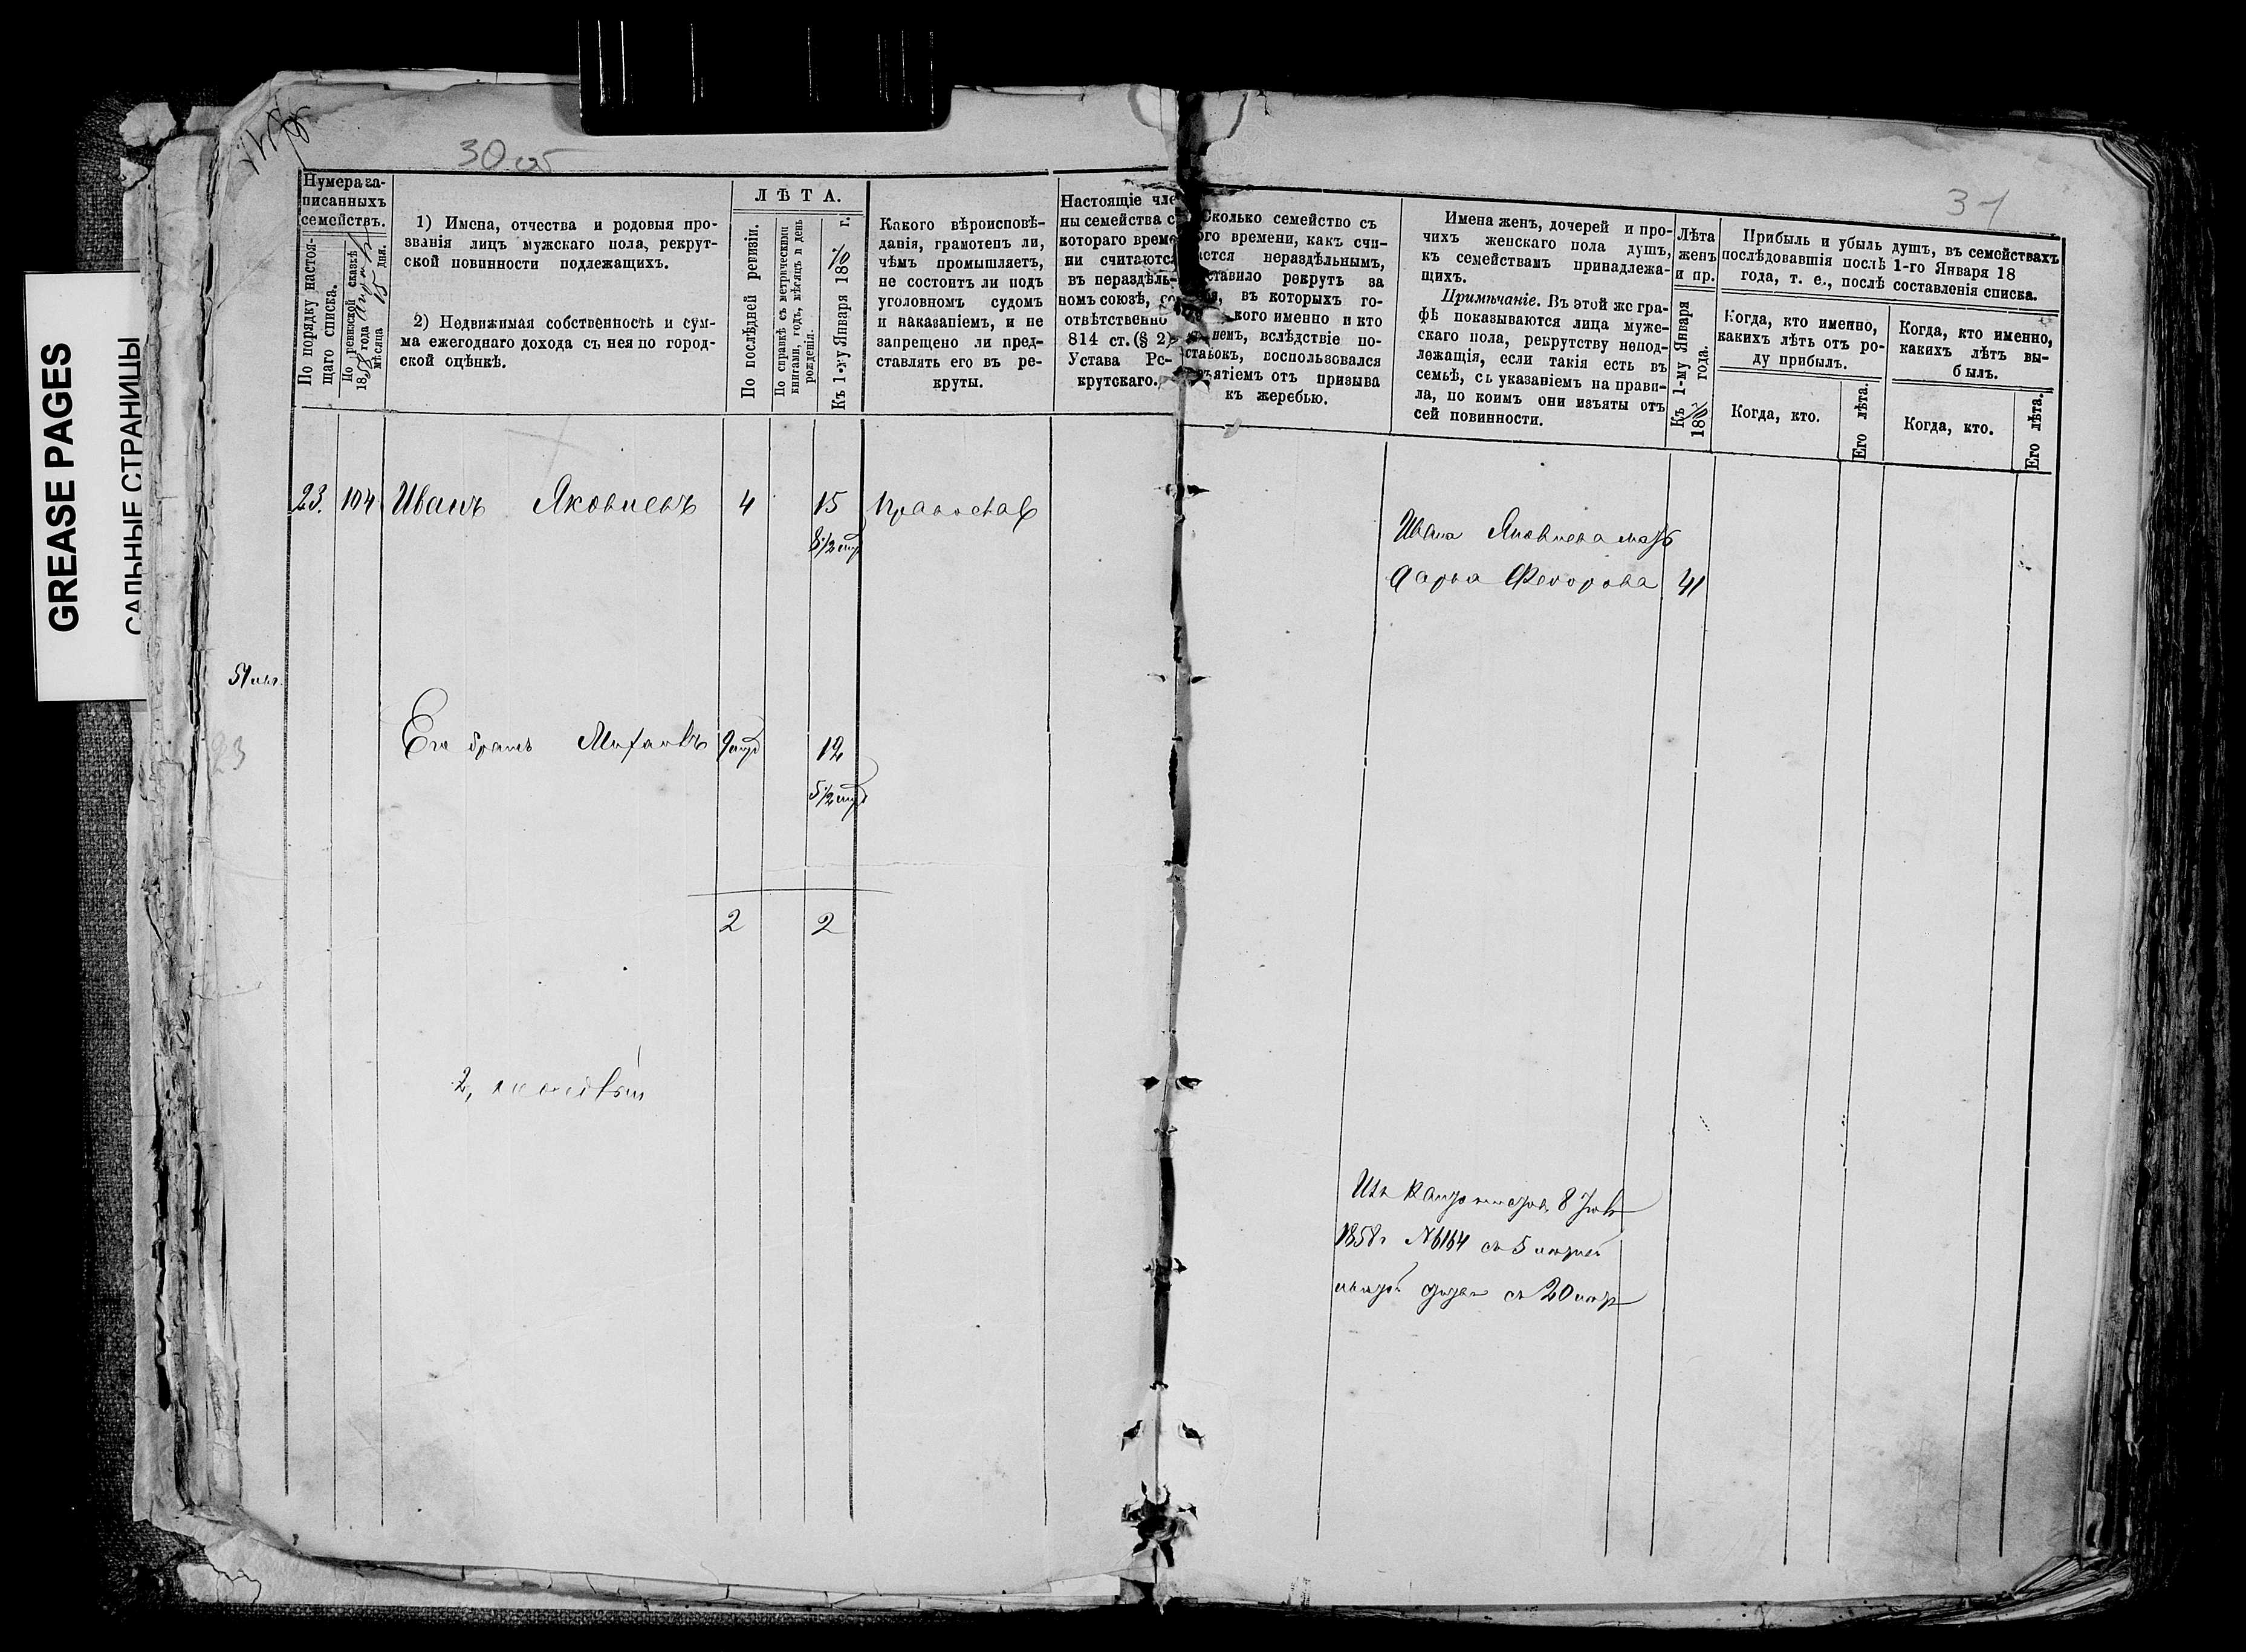 GREASE PAGES
САЛЬНЫЕ СТРАНИЦЫ
30 об
31
Нумера за-
писанныхъ
семействъ.
По порядку настоя-
щаго списка.
По ревизской сказкѣ
1858 года
мѣсяца 15 дня.
1) Имена, отчества и родовыя про-
званія лицъ мужскаго пола, рекрут-
ской повинности подлежащихъ.
2) Недвижимая собственность и сум-
ма ежегоднаго дохода съ нея по город-
ской оцѣнкѣ.
ЛѢТА.
По послѣдней ревизіи.
По справкѣ съ метрическими
книгами, годъ, мѣсяцъ и день
рожденія.
Къ 1-му Января 1870 г.
Какого вѣроисповѣ-
данія, грамотенъ ли,
чѣмъ промышляетъ,
не состоитъ ли подъ
уголовномъ судомъ
и наказаніемъ, и не
запрещено ли пред-
ставлять его въ ре-
круты.
Настоящіе чле
ны семейства с
котораго време
ни считаются
въ нераздѣль-
номъ союзѣ, со
отвѣтственно
814 ст. (§ 2)
Устава Ре-
крутскаго.
Сколько семейство съ
ого времени, какъ счи-
ается нераздѣльнымъ,
ставило рекрутъ за
въ которыхъ го-
кого именно и кто
немъ, вслѣдствіе по-
ставокъ, воспользовался
изъятіемъ отъ призыва
къ жеребью.
Имена женъ, дочерей и про-
чихъ женскаго пола душъ,
къ семействамъ принадлежа-
щихъ.
Примѣчаніе. Въ этой же гра-
фѣ показываются лица муже-
скаго пола, рекрутству непод-
лежащія, если такія есть въ
семьѣ, съ указаніемъ на прави-
ла, по коимъ они изъяты отъ
сей повинности.
Лѣта
женъ
и пр.
Къ 1-му Января
18 года.
Прибыль и убыль душъ, въ семействахъ
послѣдовавшія послѣ 1-го Января 18
года, т. е., послѣ составленія списка.
Когда, кто именно,
какихъ лѣтъ отъ ро-
ду прибылъ.
Когда, кто именно,
какихъ лѣтъ вы-
былъ.
Когда, кто.
Его лѣта.
Когда, кто.
Его лѣта.
23. 104 Иванъ Яковлевъ 4 15 Православ
8 1/2
Ивана Яковлева мать
Дарья Федорова 41
23
Его братъ Михаилъ 12
5 1/2
2 2
2,
1858 г № 6164 съ 5
съ 20